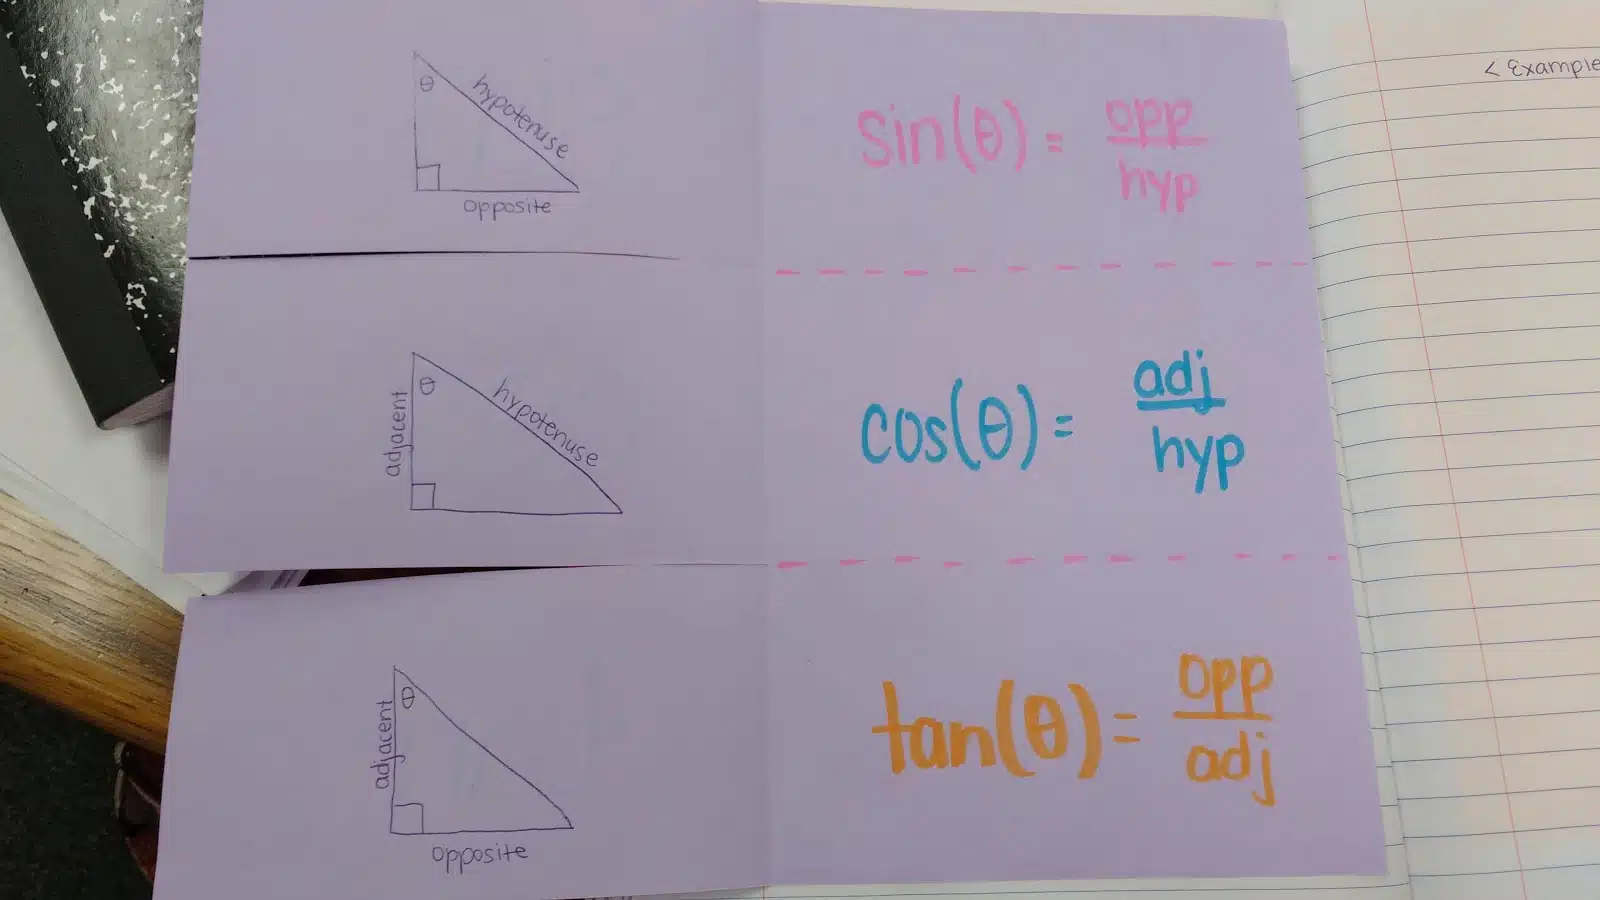 θ
hypotenuse
opposite
sin(θ) = opp
hyp
< Example
adjacent
θ
hypotenuse
cos(θ) = adj
hyp
adjacent
θ
opposite
tan(θ) = opp
adj